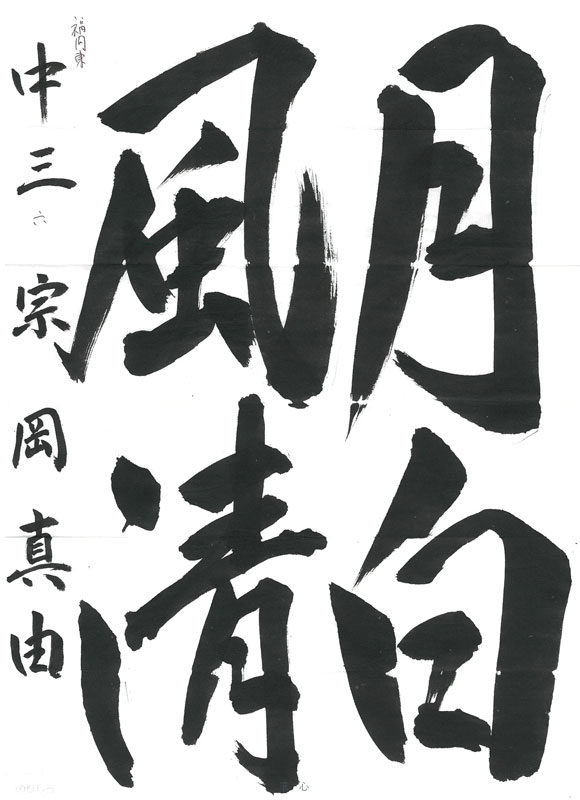 月白
風清
中三 宗岡真由
六
福円東
心